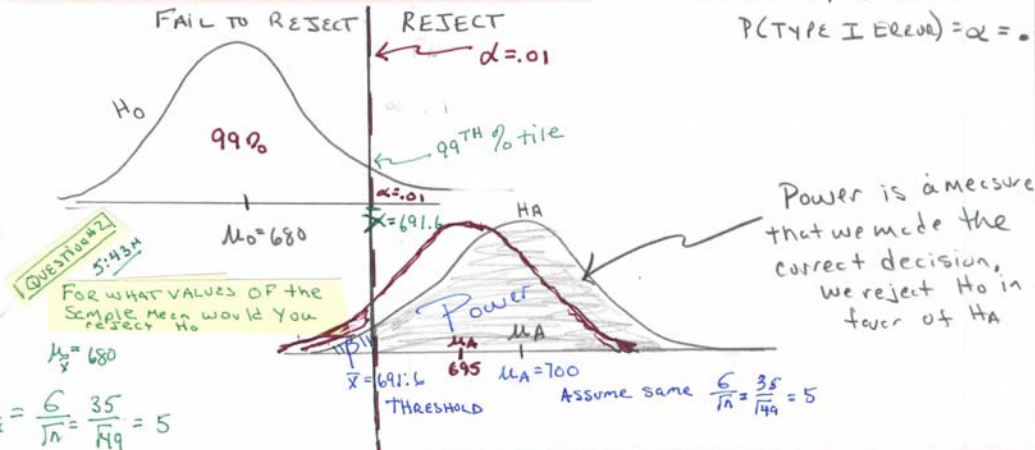 FAIL TO REJECT
REJECT
P(TYPE I ERROR) = α = .
α = .01
H₀
99%
99TH %tile
α=.01
μ₀ = 680
x̄ = 691.6
HA
Power is a measure
that we made the
correct decision,
we reject H₀ in
favor of HA
QUESTION #2
5:43M
FOR WHAT VALUES OF the
Sample Mean would You
reject H₀
μx̄ = 680
= 6/√n = 35/√49 = 5
Power
"β"
μA
μA
x̄ = 691.6
695
μA = 700
THRESHOLD
ASSUME same 6/√n = 35/√49 = 5